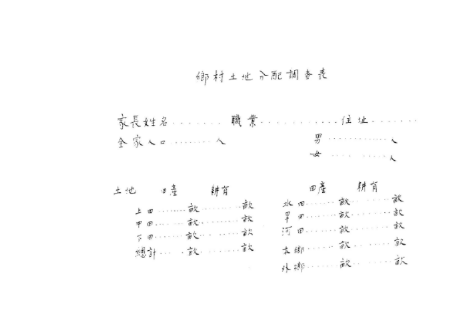 鄉村土地分配調查表
家長姓名......職業............住址......
全家人口......人 男......人
女......人
土地 田產 耕有 田產 耕有
上田......畝......畝 水田......畝......畝
中田......畝......畝 旱田......畝......畝
下田......畝......畝 河田......畝......畝
總計......畝......畝 本鄉......畝
外鄉......畝......畝